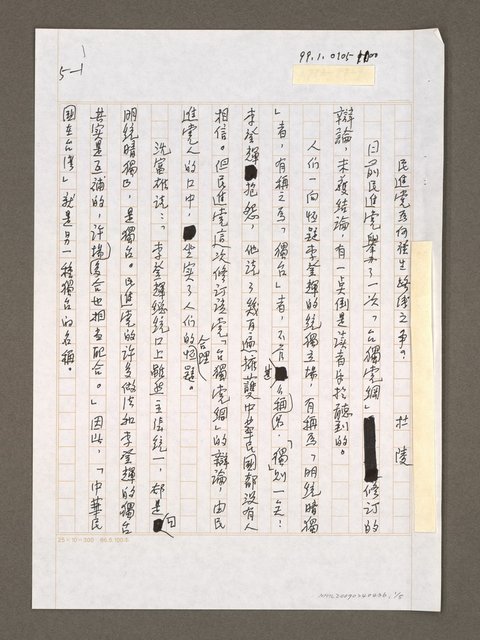 99.1.0105
5-1
民進黨為何發生路線之爭？
杜陵
日前民進黨舉辦了一次「台獨黨綱」修訂的
辯論，未獲結論，有一點倒是讀者樂於聽到的。
人們一向怀疑李登輝的統獨立場，有稱為「明統暗獨
」者，有稱之為「獨台」者，不管怎么稱名，「獨」則一矣！
李登輝抱怨，他說了幾百遍擁護中華民國都沒有人
相信。但民進黨這次修訂該黨「台獨黨綱」的辯論，由民
進黨人的口中，坐实了人們的合理怀疑。
沈富雄說：「李登輝總統口上雖然主張統一，都是
明統暗獨，是獨台。民進黨的許多做法和李登輝的獨台
其实是互補的，許多場合也相互配合。」因此，「中華民
國在台灣」就是另一種獨台的名稱。
25×10=300
NML20090240436, 1/5